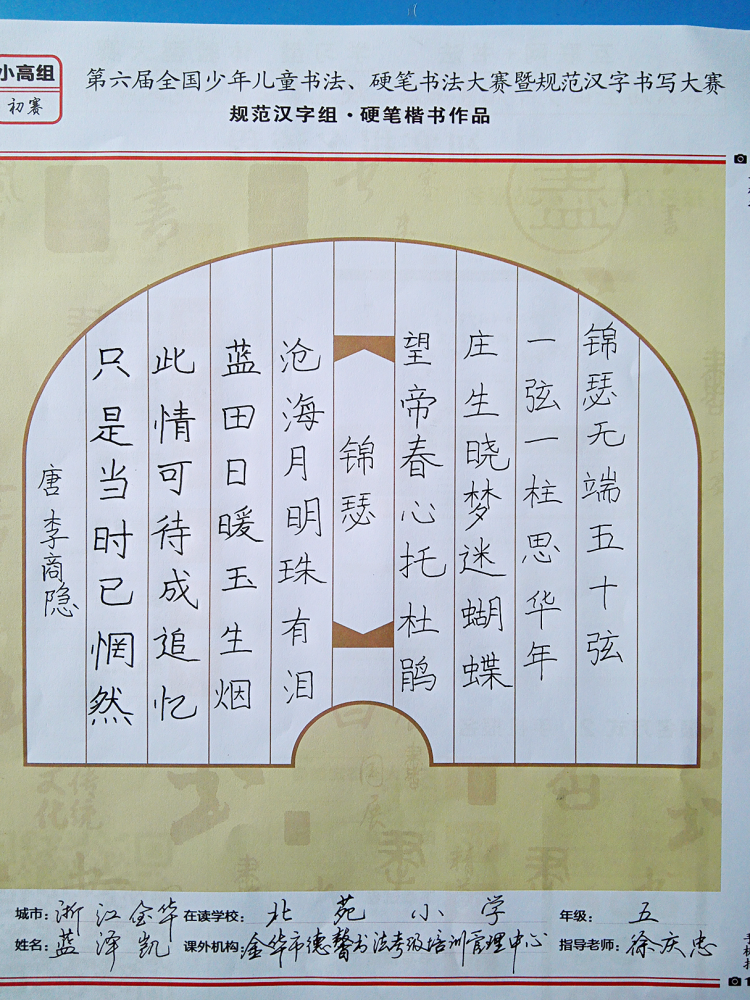 小高组
初赛
第六届全国少年儿童书法、硬笔书法大赛暨规范汉字书写大赛
规范汉字组·硬笔楷书作品
锦瑟无端五十弦
一弦一柱思华年
庄生晓梦迷蝴蝶
望帝春心托杜鹃
锦瑟
沧海月明珠有泪
蓝田日暖玉生烟
此情可待成追忆
只是当时已惘然
唐 李商隐
城市：浙江金华 在读学校：北苑小学 年级：五
姓名：蓝泽凯 课外机构：金华市德馨书法考级培训管理中心 指导老师：徐庆忠